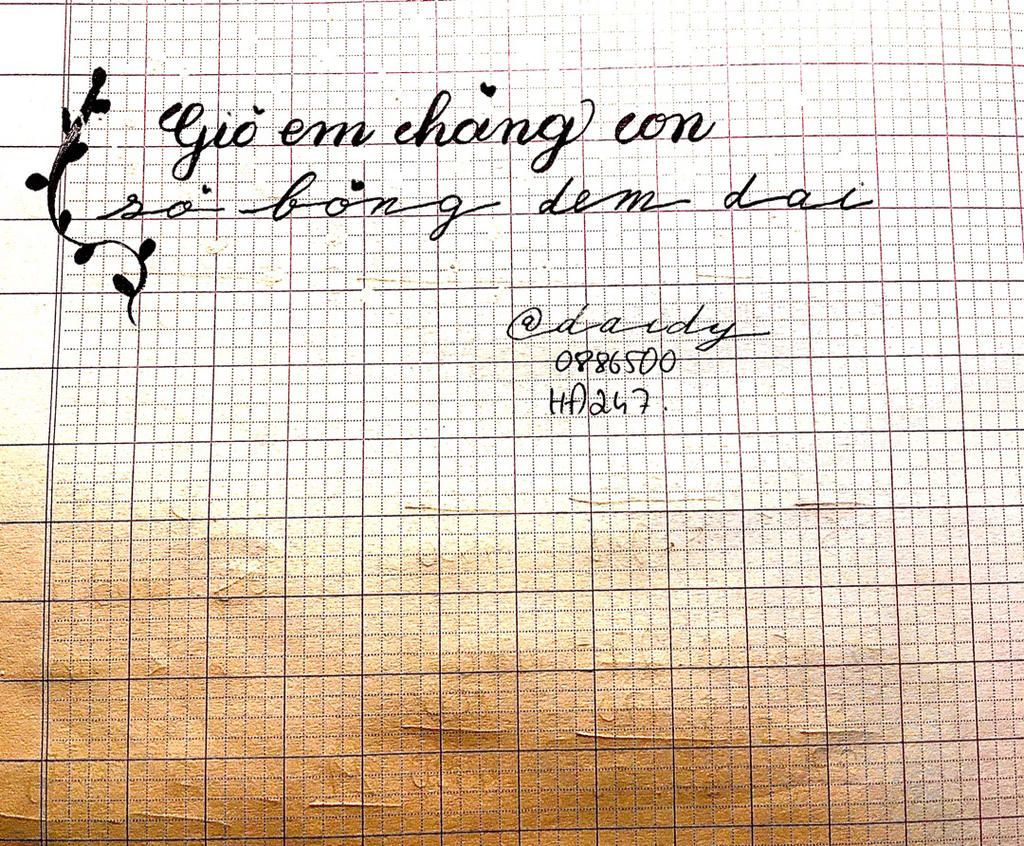 Giỏ em chảng con
sỏ bỏng dem dai
@daidy
0886500
HA247.